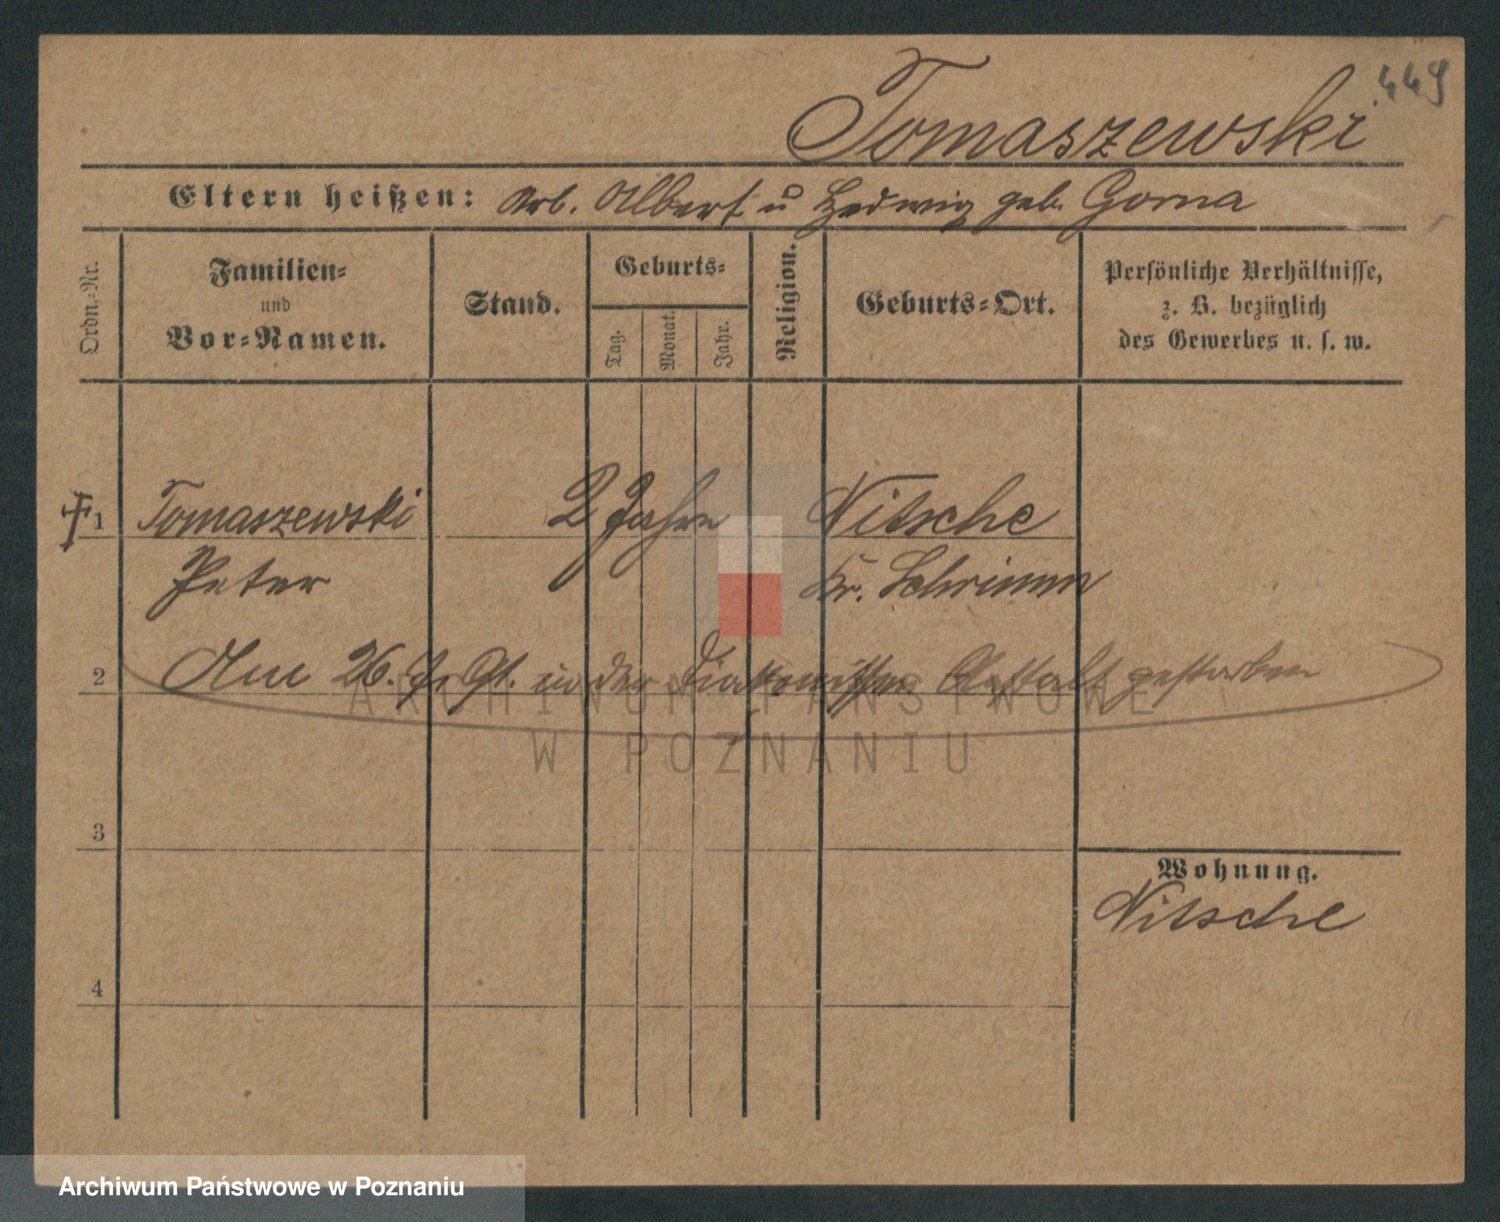 449
Tomaszewski
Eltern heißen: Arb. Albert u Hedwig geb. Gorna
Ordn.-Nr.
Familien-
und
Vor-Namen.
Stand.
Geburts-
Tag.
Monat.
Jahr.
Religion.
Geburts-Ort.
Persönliche Verhältnisse,
z. B. bezüglich
des Gewerbes u. s. w.
† 1 Tomaszewski 2 Jahre Nitsche
Peter Kr. Schrimm
2 Am 26. in der Diakonissen Anstalt gestorben
ARCHIWUM PAŃSTWOWE
W POZNANIU
3
Wohnung.
Nitsche
4
Archiwum Państwowe w Poznaniu